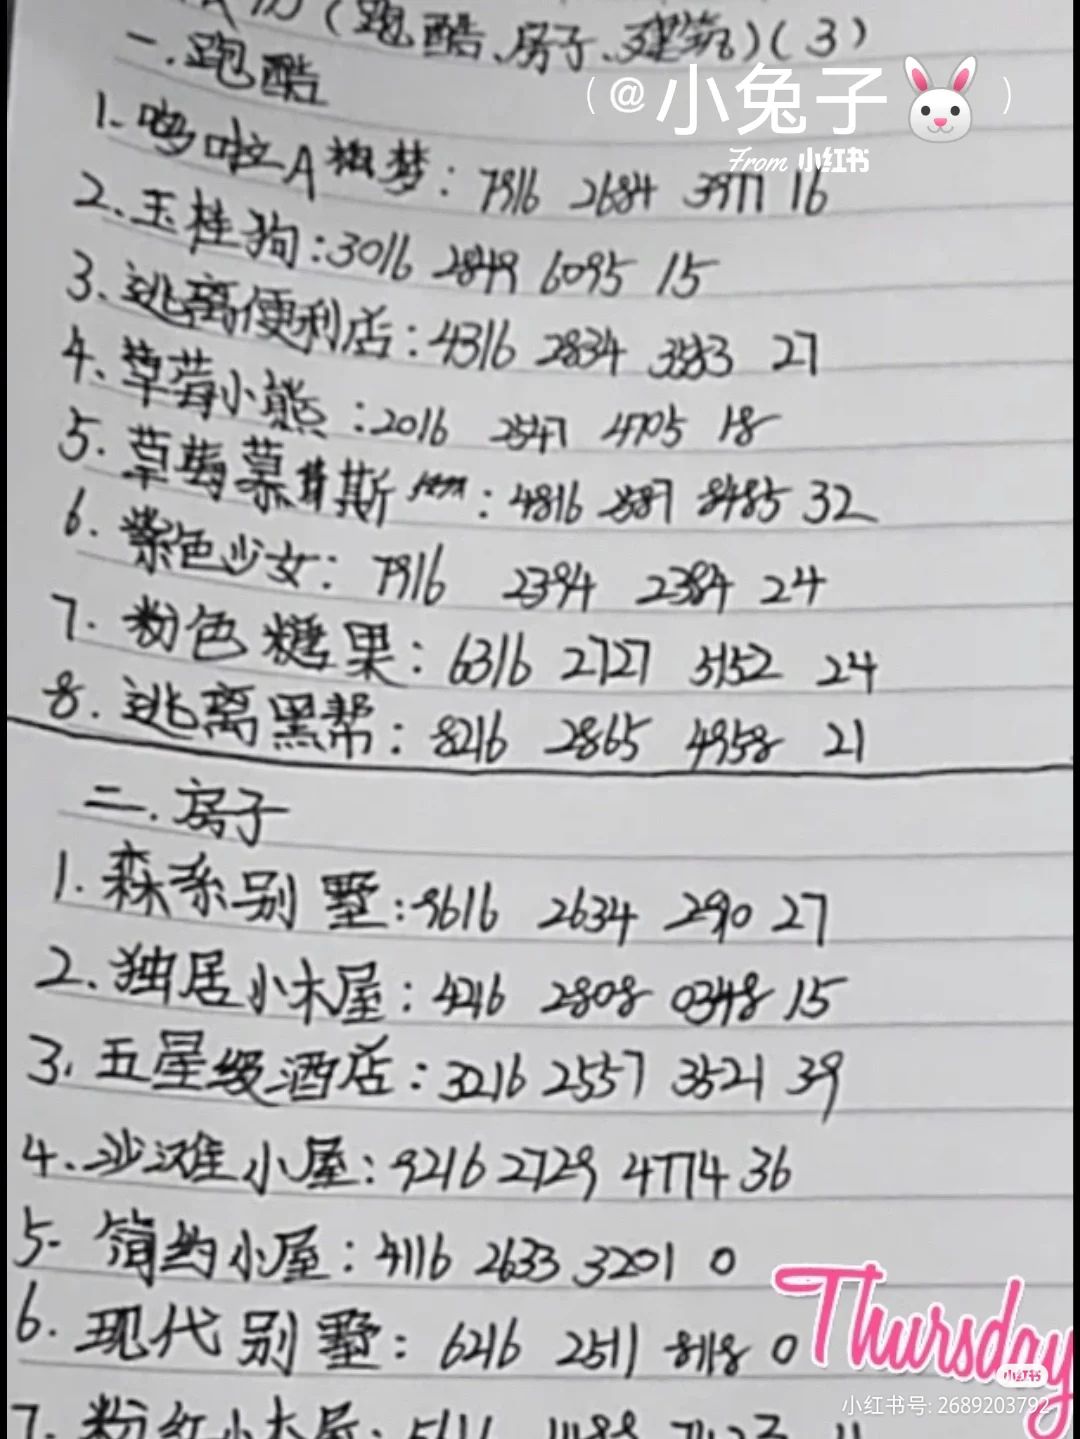 (跑酷、房子、建筑)(3)
(@小兔子🐰)
From 小红书
一.跑酷
1.哆啦A梦: 7916 2684 3977 16
2.玉桂狗:3016 2849 6095 15
3.逃离便利店:4316 2834 3583 27
4.草莓小熊:2016 2547 4705 18
5.草莓慕斯:4816 2587 8485 32
6.紫色少女: 7916 2394 2384 24
7.粉色糖果: 6316 2727 5152 24
8.逃离黑帮: 8216 2865 4958 21
二.房子
1.森系别墅:9616 2634 290 27
2.独居小木屋: 4216 2808 0348 15
3.五星级酒店:3216 2557 3521 39
4.沙滩小屋:9216 2729 4774 36
5.简约小屋:4116 2633 3201 0
6.现代别墅: 6216 2511 8118 0
7.粉红小木屋:
Thursday
小红书
小红书号: 2689203792